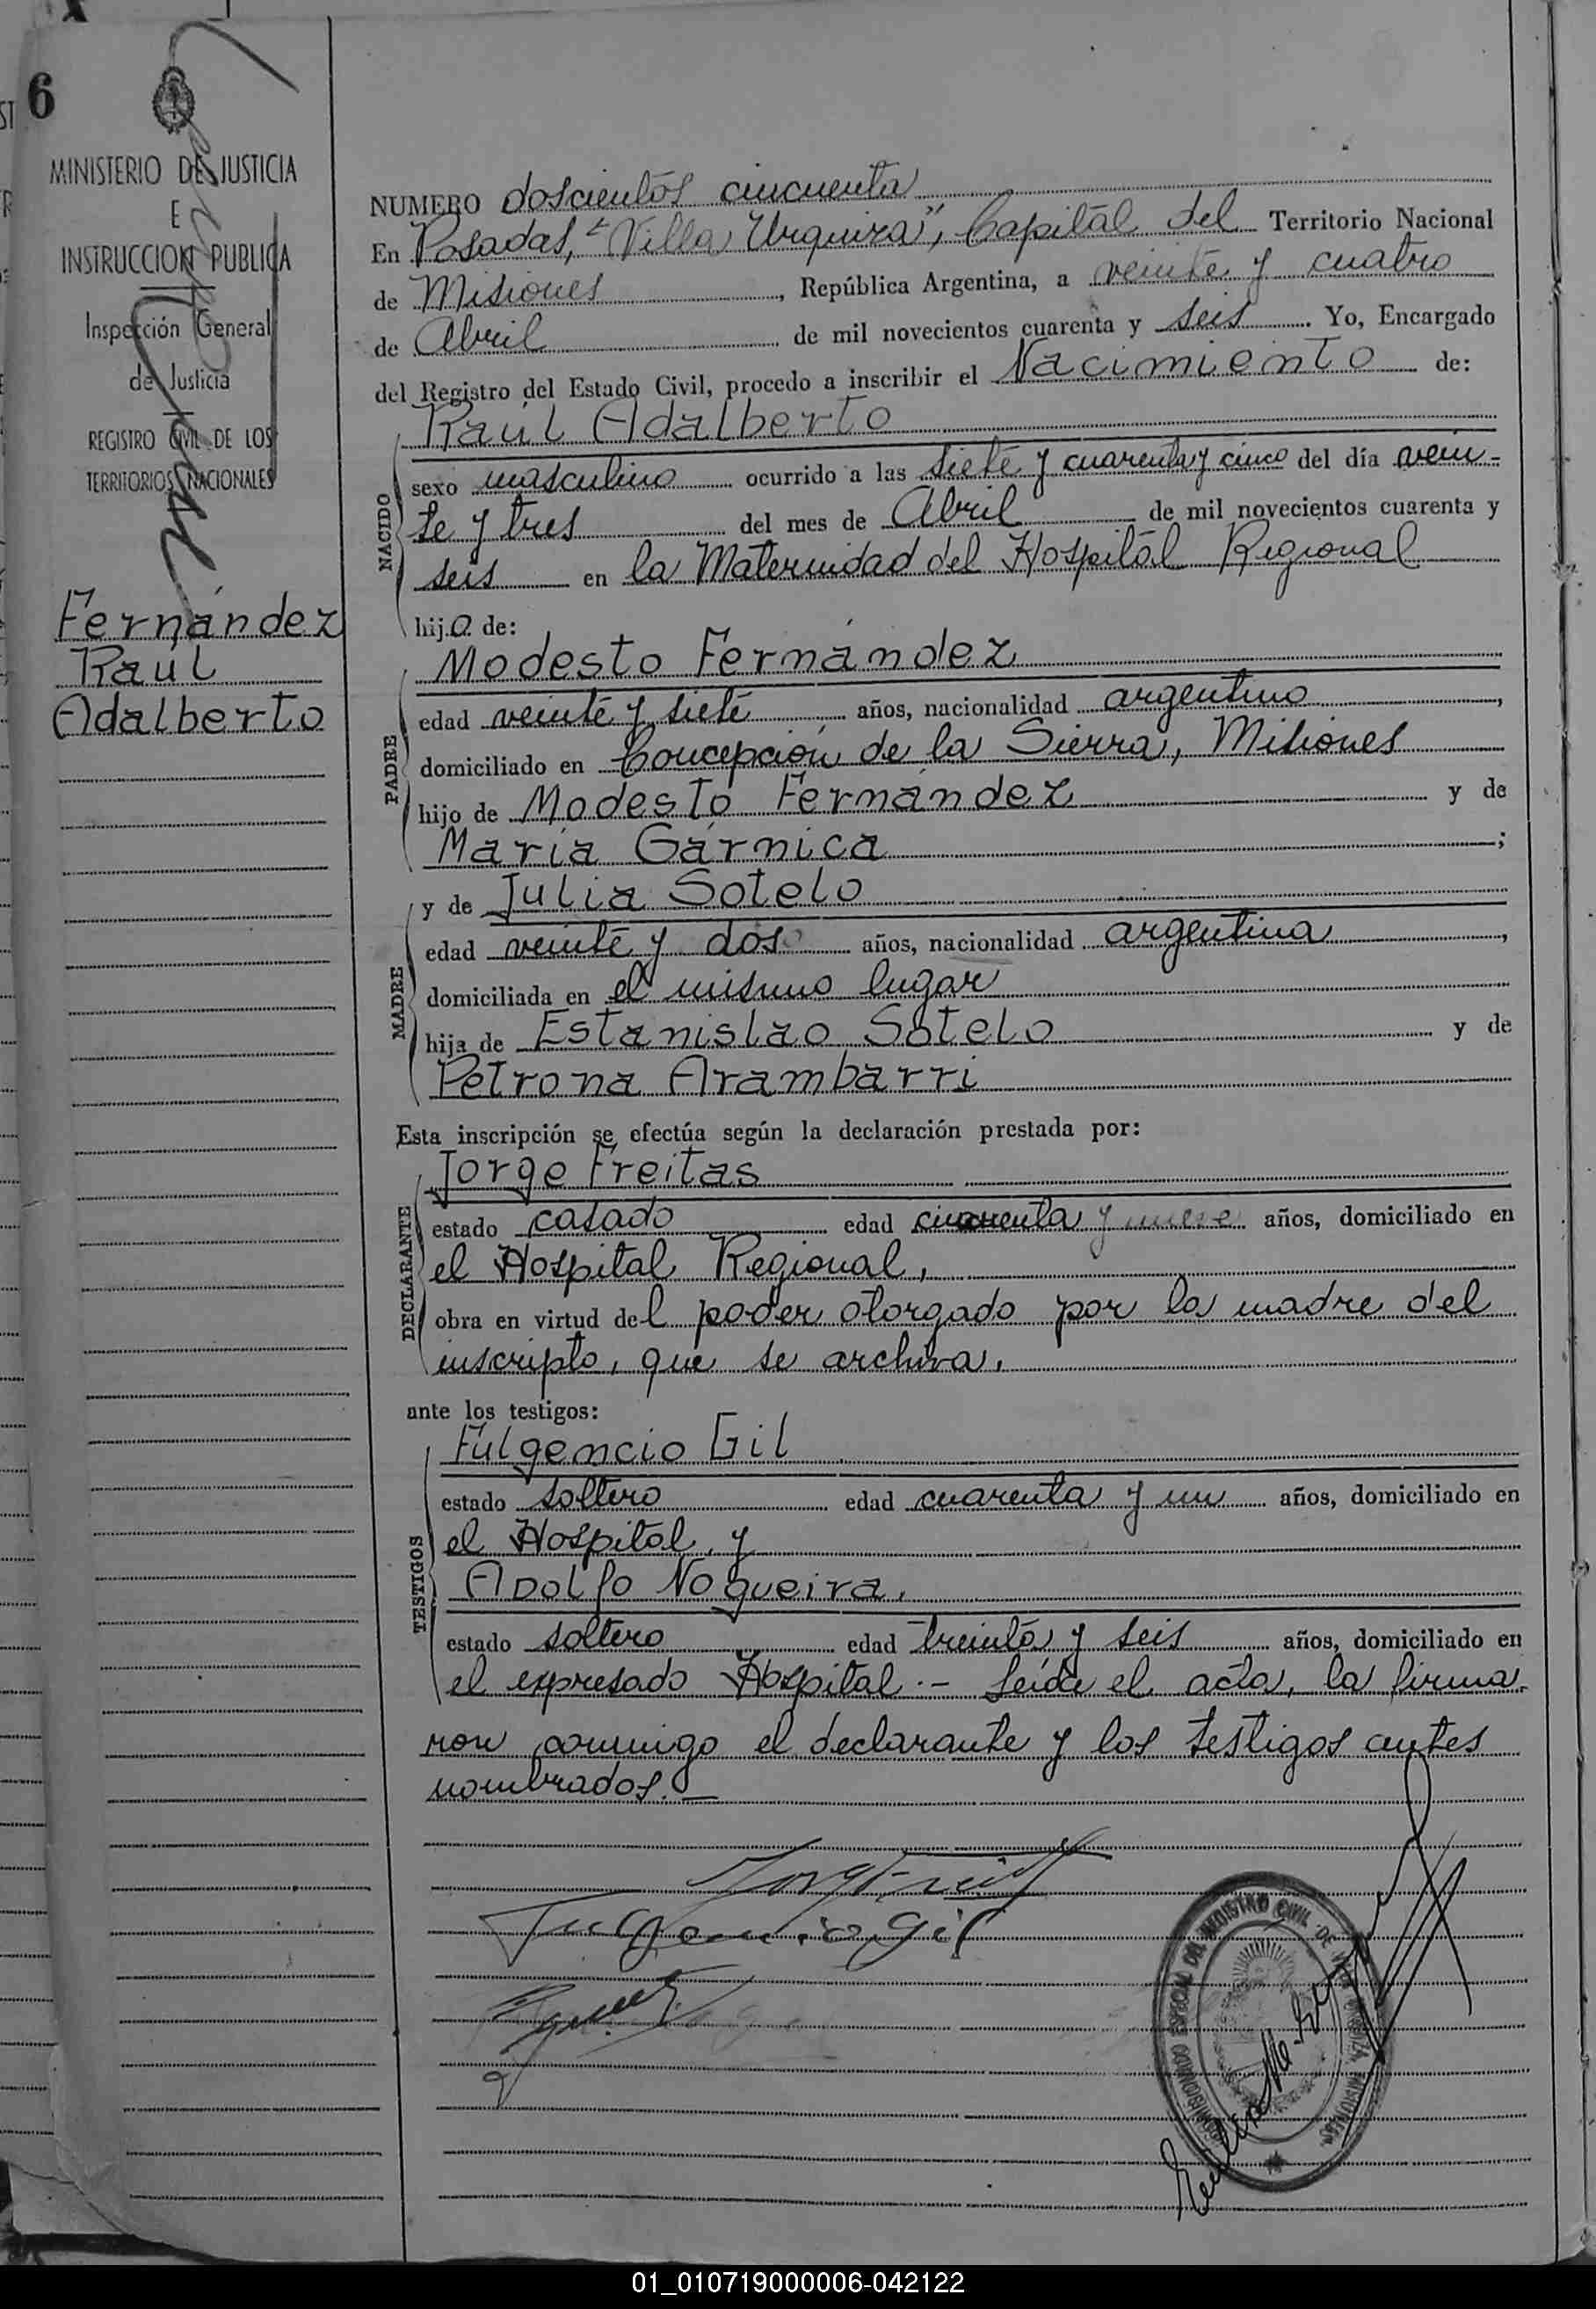 6
MINISTERIO DE JUSTICIA
E
INSTRUCCION PUBLICA
Inspección General
de Justicia
REGISTRO CIVIL DE LOS
TERRITORIOS NACIONALES
Fernández
Raúl
Adalberto
NUMERO doscientos cincuenta
En Posadas, "Villa Urquiza", Capital del Territorio Nacional
de Misiones, República Argentina, a veinte y cuatro
de Abril de mil novecientos cuarenta y seis. Yo, Encargado
del Registro del Estado Civil, procedo a inscribir el Nacimiento de:
NACIDO
Raúl Adalberto
sexo masculino ocurrido a las siete y cuarenta y cinco del día vein-
te y tres del mes de Abril de mil novecientos cuarenta y
seis en la Maternidad del Hospital Regional
hijo de:
PADRE
Modesto Fernández
edad veinte y siete años, nacionalidad argentino,
domiciliado en Concepción de la Sierra, Misiones
hijo de Modesto Fernández y de
María Gárnica;
MADRE
y de Julia Sotelo
edad veinte y dos años, nacionalidad argentina,
domiciliada en el mismo lugar
hija de Estanislao Sotelo y de
Petrona Arambarri
Esta inscripción se efectúa según la declaración prestada por:
DECLARANTE
Jorge Freitas
estado casado edad cuarenta y nueve años, domiciliado en
el Hospital Regional,
obra en virtud del poder otorgado por la madre del
inscripto, que se archiva.
ante los testigos:
TESTIGOS
Fulgencio Gil
estado soltero edad cuarenta y un años, domiciliado en
el Hospital, y
Adolfo Nogueira,
estado soltero edad treinta y seis años, domiciliado en
el expresado Hospital.- Leída el acta, la firma-
ron conmigo el declarante y los testigos antes
nombrados.-
Fulgencio Gil
REGISTRO CIVIL DE
01_010719000006-042122